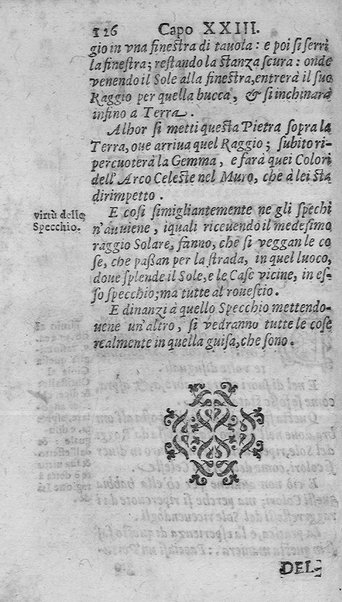 126 Capo XXIII.
gio in vna finestra di tauola: e poi si serri
la finestra; restando la stanza scura: onde
venendo il Sole alla finestra, entrerà il suo
Raggio per quella bucca, & si inchinarà
infino a Terra.
Alhor si metti questa Pietra sopra la
Terra, oue arriua quel Raggio; subito ri-
percuoterà la Gemma, e farà quei Colori
dell'Arco Celeste nel Muro, che à lei stà
dirimpetto.
virtù dello
Specchio.
E così simigliantemente ne gli spechi
n'auuiene, iquali riceuendo il medesimo
raggio Solare, fanno, che si veggan le co
se, che paßan per la strada, in quel luoco,
doue splende il Sole, e le Case vicine, in es-
so specchio; ma tutte al rouescio.
E dinanzi à quello Specchio mettendo-
uene un'altro, si vedranno tutte le cose
realmente in quella guisa, che sono.
DEL-